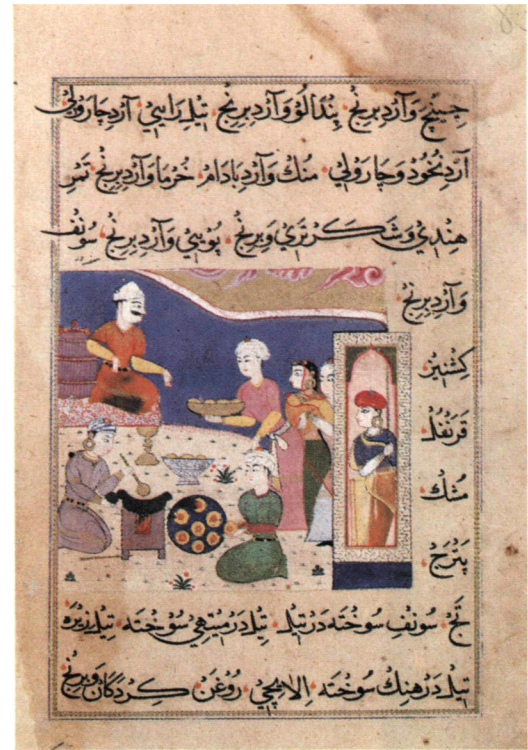 حینچ وآرد برنج، پندالو وآرد برنج، تیلِ رایي، آرد چارولي
آرد نخود وچارولي، منك وآرد بادام، خرما وآرد برنج، تمر
هندي وشکر تري وبرنج، پویي وآرد برنج، سونف
وآرد برنج
کشنیز
قرنفل
مشك
پترج
تج، سونف سوخته در تیل، تیل در میتهي سوخته، تیل زیره
تیل در هنك سوخته، الاچي، روغن کردکان وبرنج